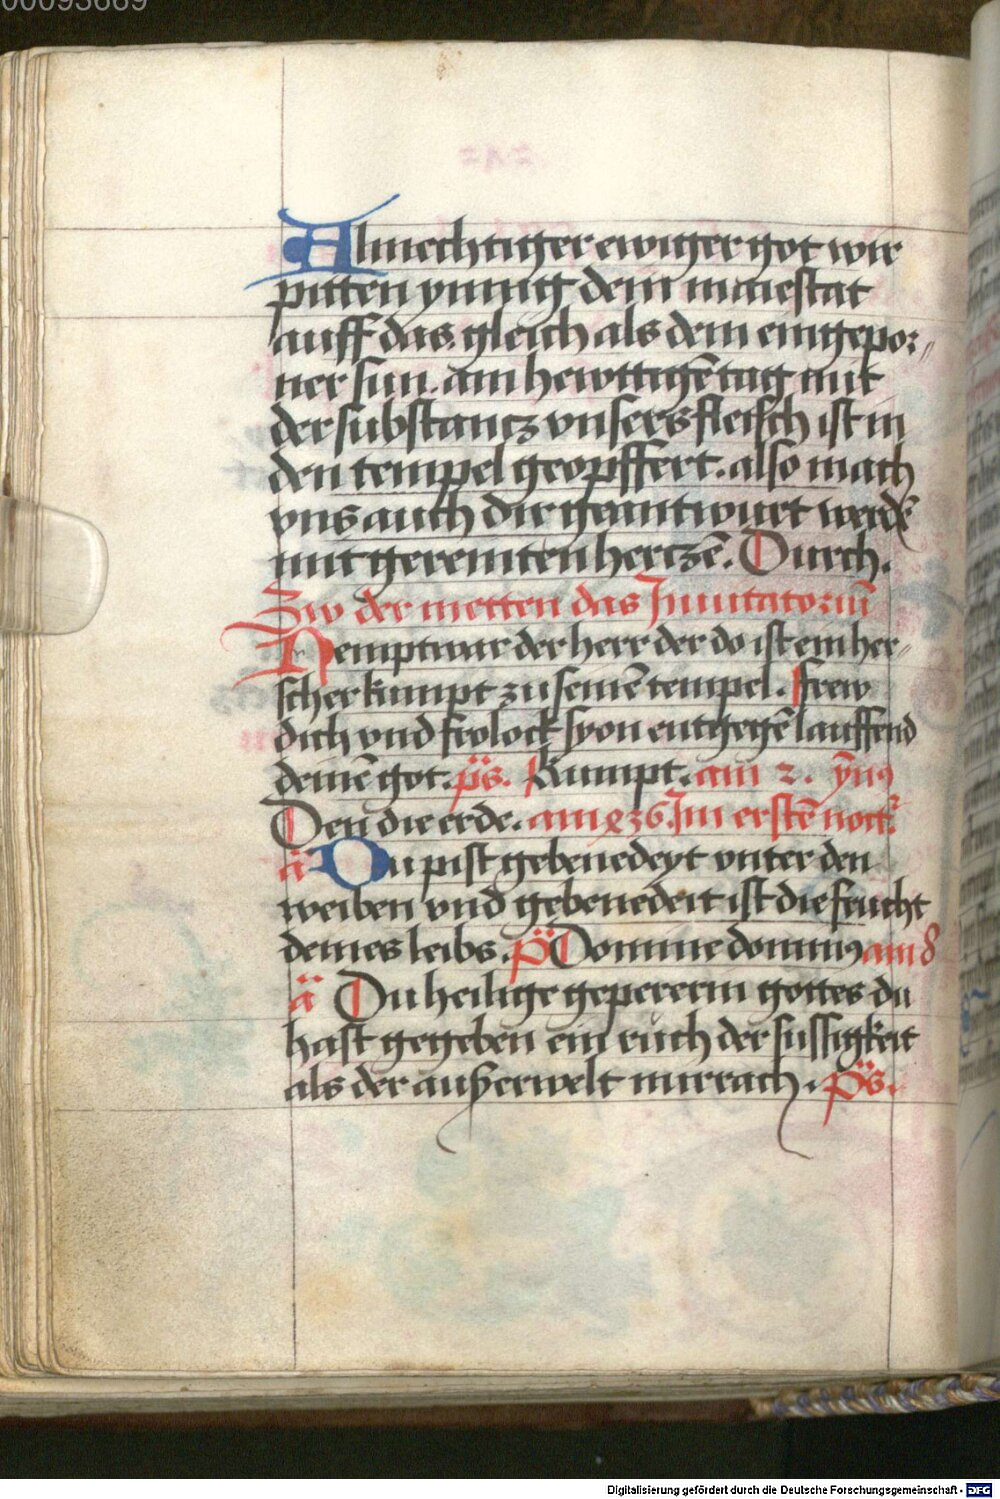 00093669
Almechtiger ewiger got wir
pitten ynnig dein maiestat
auff das gleich als dein eingepor„
ner sun. am hewttigē tag mit
der substancz vnsers fleisch ist in
den tempel geopffert. also mach
vns auch dir geantwurt werdē
mit gereinten herczē. Durch.
Zw der metten das Inuitatoriū
Nempt war der herr der do ist ein her„
scher kumpt zu seinē tempel. frew
dich vnd frolock syon entgegē lauffend
deinē got. ps. Kumpt. am 2. ymꝰ
Den die erde. am 236. Im erstē noct.
a Du pist gebenedeyt vnter den
weiben vnd gebenedeit ist die frucht
deines leibs. p Domine dominꝰ am 8
a Du heilige gepererin gottes du
hast gegeben ein ruch der sussigkeit
als der außerwelt mirrach. ps.
Digitalisierung gefördert durch die Deutsche Forschungsgemeinschaft - DFG